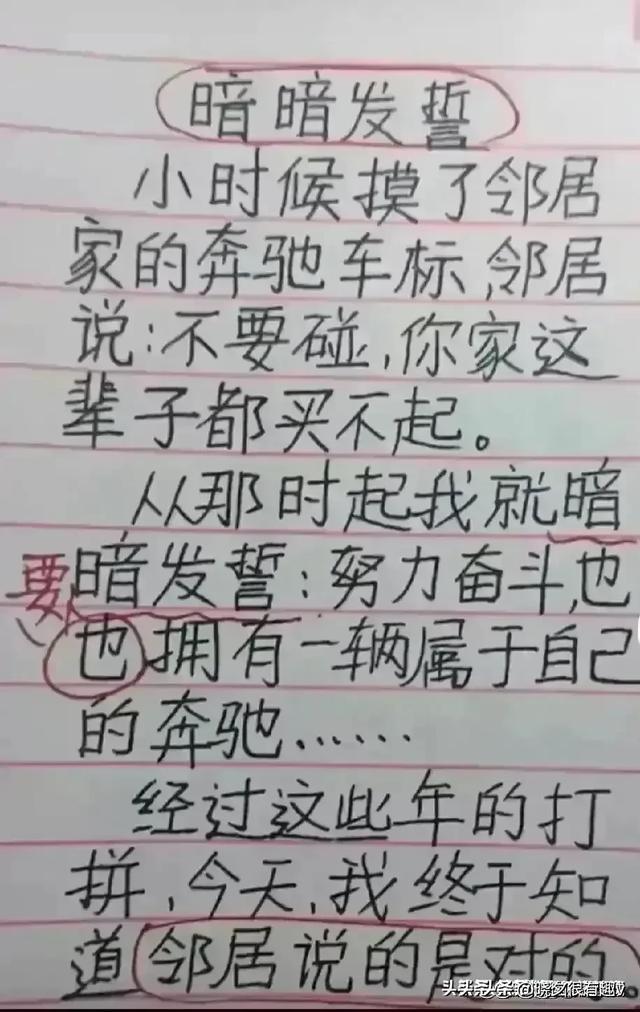 暗暗发誓
小时候摸了邻居
家的奔驰车标,邻居
说:不要碰,你家这
辈子都买不起。
从那时起我就暗
要
暗发誓:努力奋斗,也
也拥有一辆属于自己
的奔驰……
经过这些年的打
拼,今天,我终于知
道邻居说的是对的。